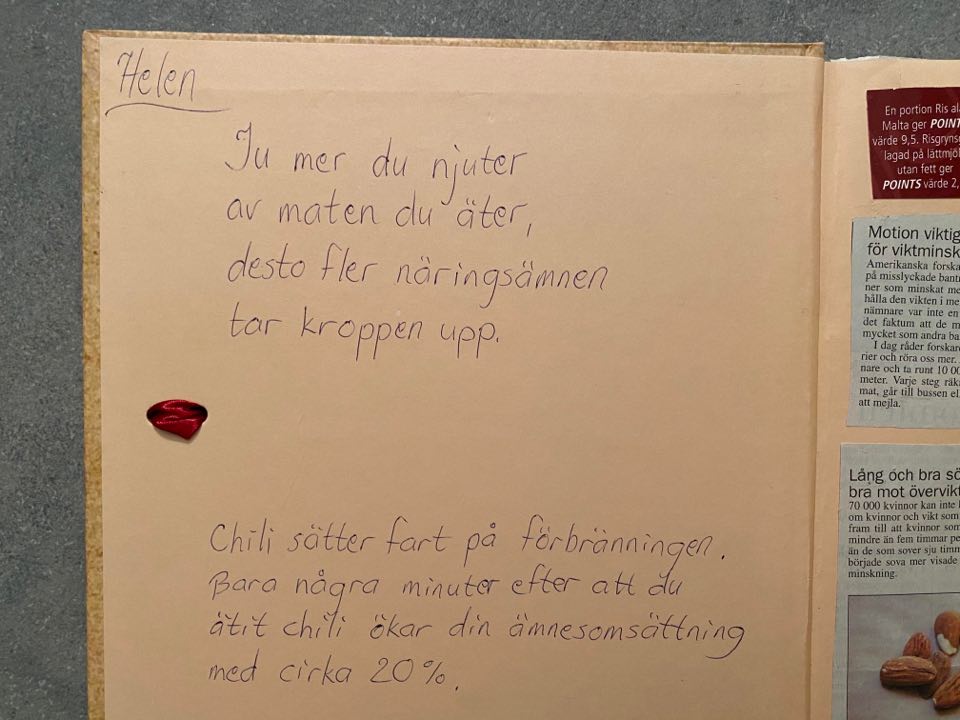 Helen
Ju mer du njuter
av maten du äter,
desto fler näringsämnen
tar kroppen upp.
Chili sätter fart på förbränningen.
Bara några minuter efter att du
ätit chili ökar din ämnesomsättning
med cirka 20%.
En portion Ris
Malta ger
värde 9,5.
lagad på
utan fett ger
POINTS värde 2,
Motion
för
Amerikanska
på misslyckade
ner som minskat
hålla den vikten i
nämnare var inte en
det faktum att de
mycket som andra
I dag råder
rier och röra oss mer.
nare och ta runt 10
meter. Varje steg
mat, går till bussen
att mejla.
Lång och bra
bra mot
70 000 kvinnor kan inte
om kvinnor och vikt som
fram till att kvinnor som
mindre än fem timmar
än de som sover sju
började sova mer visade
minskning.